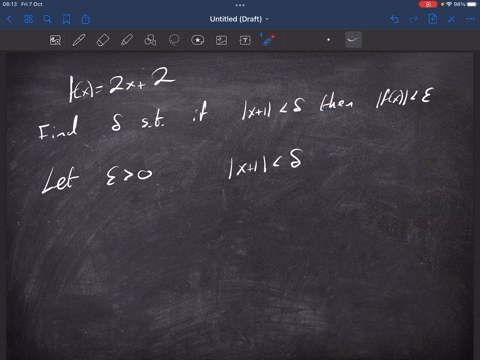 08:13 Fri 7 Oct 98%
Untitled (Draft)
f(x) = 2x + 2
Find δ s.t. if |x+1| < δ then |f(x)| < ε
Let ε > 0 |x+1| < δ